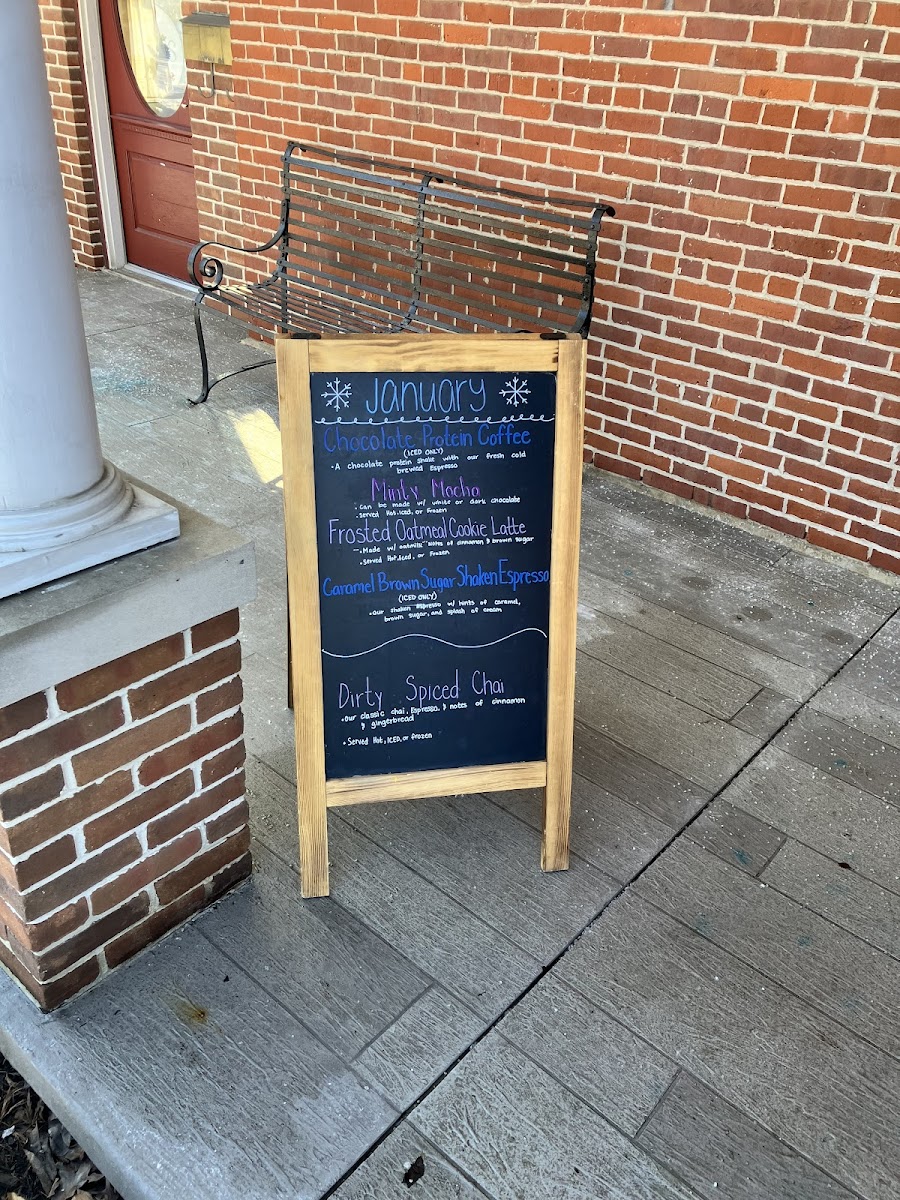 January
Chocolate Protein Coffee
(ICED ONLY)
• A chocolate protein shake with our fresh cold
brewed Espresso
Minty Mocha
• Can be made w/ white or dark chocolate
• Served Hot, Iced, or Frozen
Frosted Oatmeal Cookie Latte
• Made w/ oatmilk notes of cinnamon & brown sugar
• Served Hot, Iced, or Frozen
Caramel Brown Sugar Shaken Espresso
(ICED ONLY)
• Our shaken espresso w/ hints of caramel,
brown sugar, and splash of cream
Dirty Spiced Chai
• Our classic chai, Espresso, & notes of cinnamon
& gingerbread
• Served Hot, ICED, or frozen